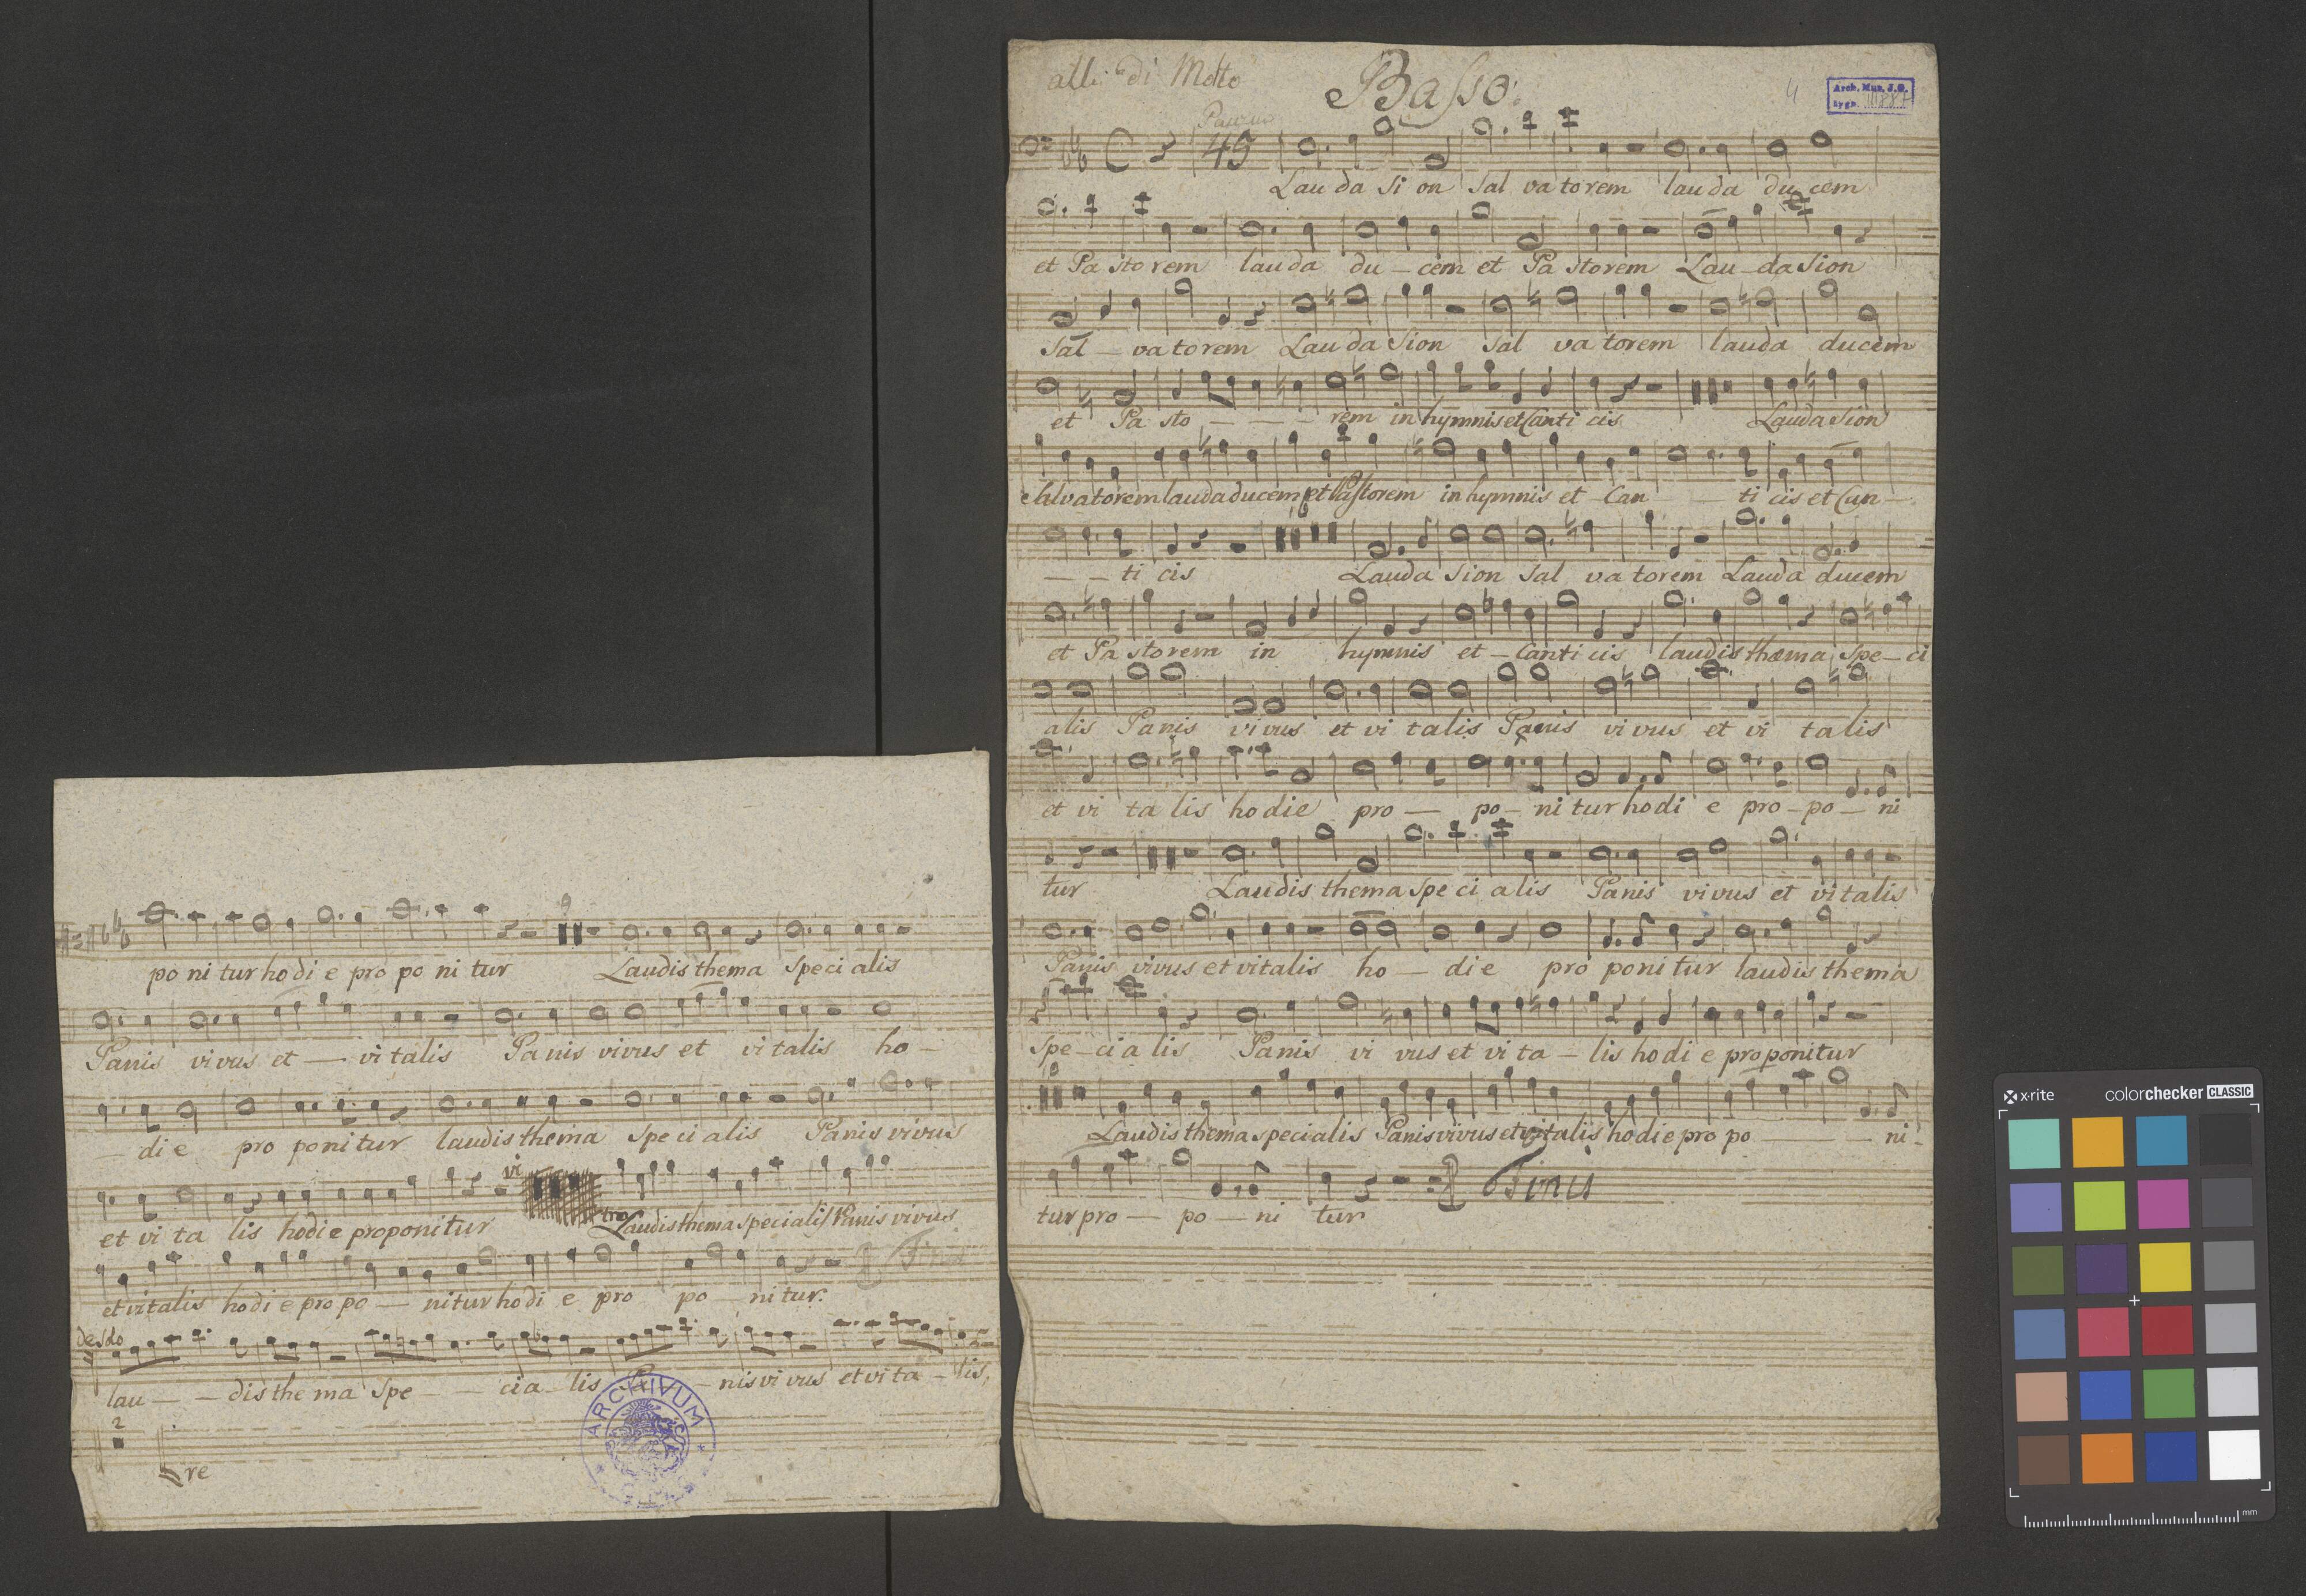 po ni tur ho di e pro po ni tur Laudis thema speci alis
Panis vivus et — vi talis Panis vivus et vi talis ho —
— di e pro ponitur laudis thema speci alis Panis vivus
vi
et vi ta lis hodie proponitur Laudis thema specialis Panis vivus
et vitalis hodi e pro po — nitur hodi e pro po — ni tur.
lau — — dis the ma spe — — cia — lis — nis vi vus et vi ta — lis,
2
re
ARCHIVUM
alle: di Molto Basso: 4
Arch. Mus. J.G.
sygn.
45
Lau da Si on Sal va torem lauda du cem
et Pa sto rem lau da du — cem et Pa storem Lau — da Sion
Sal — va torem Lau da Sion Sal va torem lauda ducem
et Pa sto — — — rem in hymnis et Canti cis Lauda Sion
Salvatorem lauda ducem et Pastorem in hymnis et Can — — ti cis et Can —
— — ti cis Lauda Sion Sal va torem Lauda ducem
et Pa storem in hymnis et — Canti cis laudis thæma spe — ci
alis Panis vi vus et vi talis Panis vi vus et vi talis
et vi ta lis ho die pro — po — ni tur hodi e pro — po — ni
tur Laudis thema spe ci alis Panis vivus et vi talis
Panis vivus et vitalis ho — di e pro ponitur laudis thema
Spe — ci a lis Panis vi vus et vi ta — lis hodi e proponitur
Laudis thema specialis Panis vivus et vitalis hodie pro po — — — ni —
Finis
tur pro — po — ni tur
x·rite colorchecker CLASSIC
mm